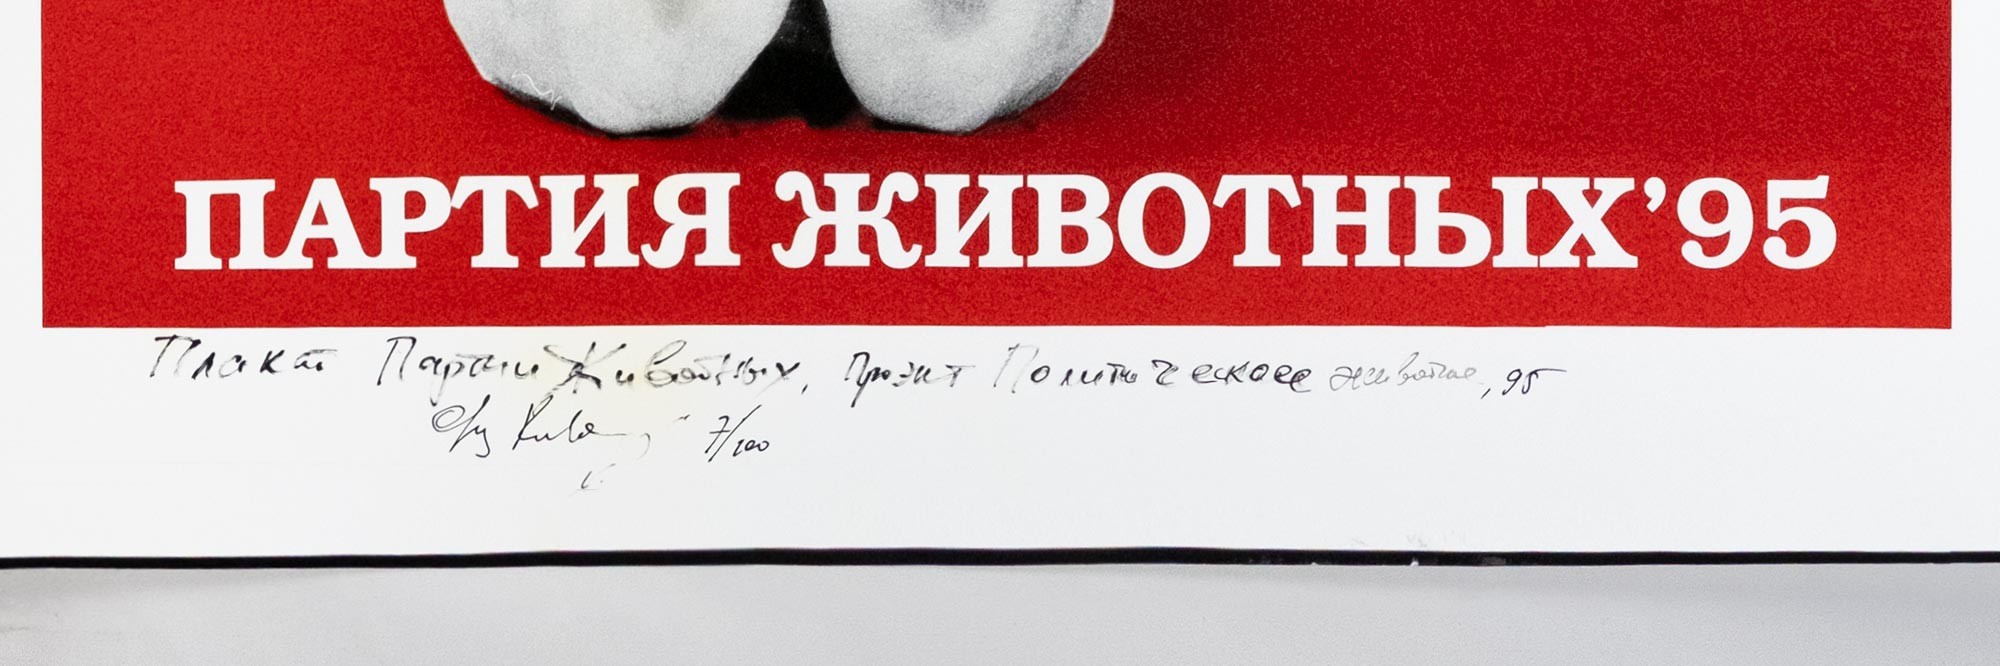 ПАРТИЯ ЖИВОТНЫХ’95
Плакат Партии Животных, Проэкт Политическое животное, 95
7/100